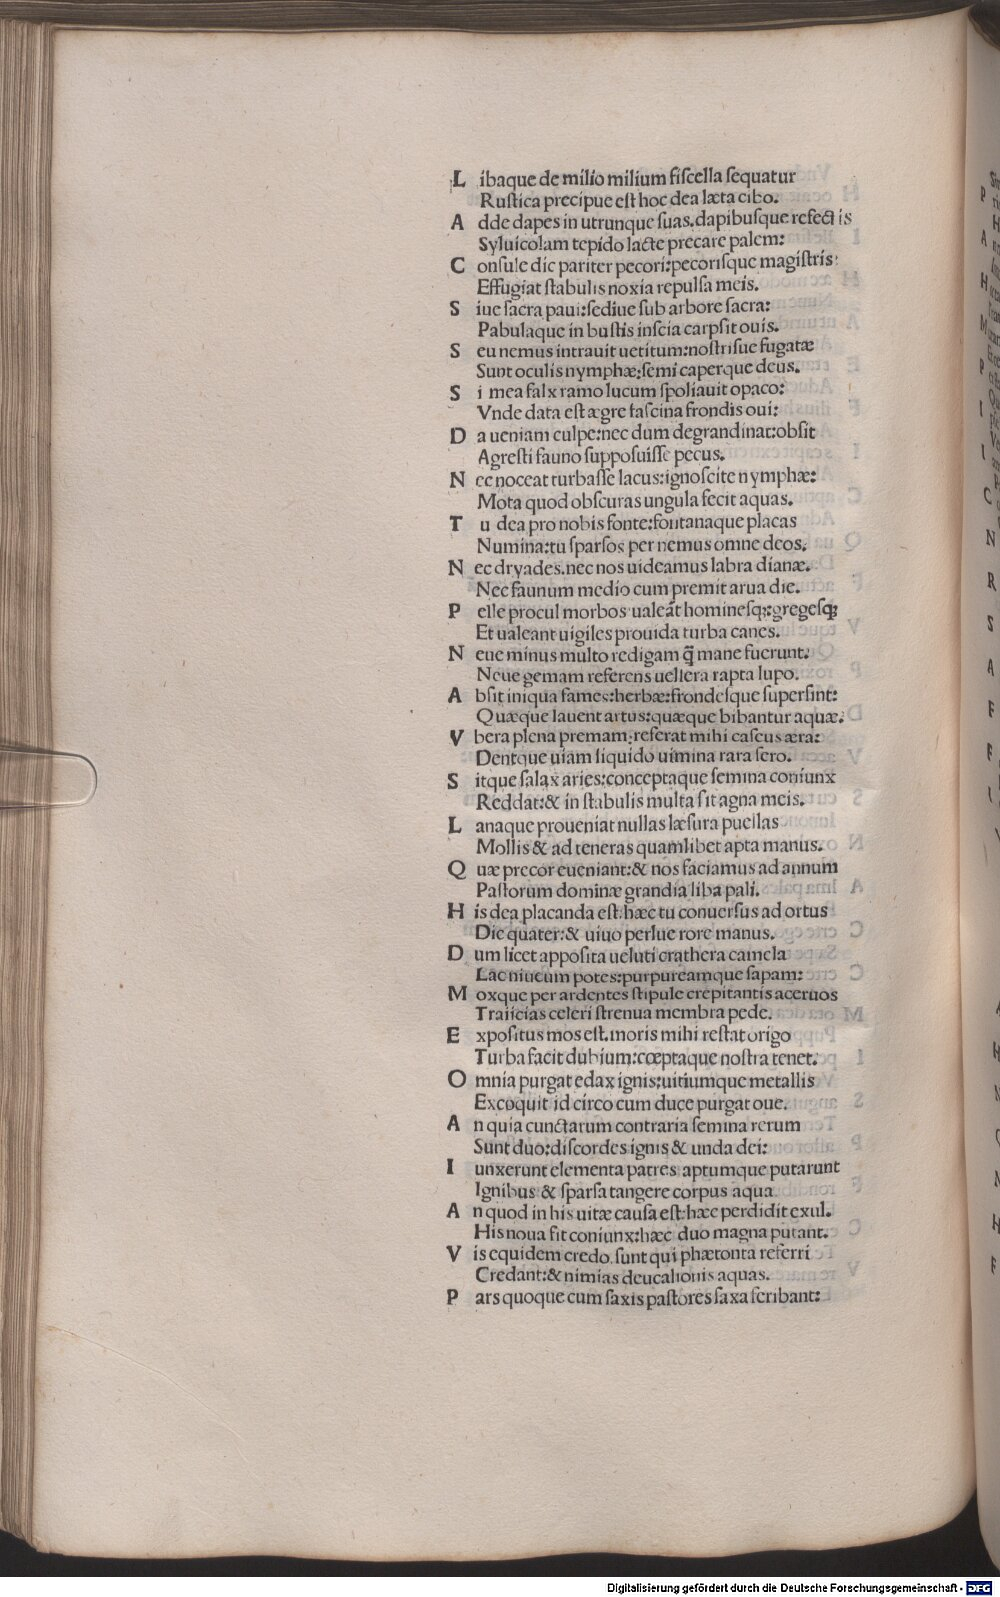 L ibaque de milio milium fiſcella ſequatur
Ruſtica precipue eſt hoc dea læta cibo.
A dde dapes in utrunque ſuas. dapibuſque refectis
Syluicolam tepido lacte precare palem:
C onſule dic pariter pecori: pecoriſque magiſtris:
Effugiat ſtabulis noxia repulſa meis.
S iue ſacra paui: ſediue ſub arbore ſacra:
Pabulaque in buſtis inſcia carpſit ouis.
S eu nemus intrauit uetitum: noſtriſue fugatæ
Sunt oculis nymphæ: ſemi caperque deus.
S i mea falx ramo lucum ſpoliauit opaco:
Vnde data eſt ægre faſcina frondis oui:
D a ueniam culpe: nec dum degrandinat: obſit
Agreſti fauno ſuppoſuiſſe pecus.
N ec noceat turbaſſe lacus: ignoſcite nymphæ:
Mota quod obſcuras ungula fecit aquas.
T u dea pro nobis fonte: fontanaque placas
Numina: tu ſparſos per nemus omne deos.
N ec dryades. nec nos uideamus labra dianæ.
Nec faunum medio cum premit arua die.
P elle procul morbos ualeãt homineſqꝫ: gregeſqꝫ
Et ualeant uigiles prouida turba canes.
N eue minus multo redigam q̃ mane fuerunt.
Neue gemam referens uellera rapta lupo.
A bſit iniqua fames: herbæ: frondeſque ſuperſint:
Quæque lauent artus: quæque bibantur aquæ.
V bera plena premam: referat mihi caſeus æra:
Dentque uiam liquido uimina rara ſero.
S itque ſalax aries: conceptaque ſemina coniunx
Reddat: & in ſtabulis multa ſit agna meis.
L anaque proueniat nullas læſura puellas
Mollis & ad teneras quamlibet apta manus.
Q uæ precor eueniant: & nos faciamus ad annum
Paſtorum dominæ grandia liba pali.
H is dea placanda eſt. hæc tu conuerſus ad ortus
Dic quater: & uiuo perlue rore manus.
D um licet appoſita ueluti crathera camela
Lac niueum potes: purpureamque ſapam:
M oxque per ardentes ſtipule crepitantis aceruos
Traiicias celeri ſtrenua membra pede.
E xpoſitus mos eſt. moris mihi reſtat origo
Turba facit dubium: cœptaque noſtra tenet.
O mnia purgat edax ignis: uitiumque metallis
Excoquit id circo cum duce purgat oue.
A n quia cunctarum contraria ſemina rerum
Sunt duo: diſcordes ignis & unda dei:
I unxerunt elementa patres aptumque putarunt
Ignibus & ſparſa tangere corpus aqua
A n quod in his uitæ cauſa eſt. hæc perdidit exul.
His noua fit coniunx: hæc duo magna putant.
V is equidem credo. ſunt qui phætonta referri
Credant: & nimias deucalionis aquas.
P ars quoque cum ſaxis paſtores ſaxa feribant:
Digitalisierung gefördert durch die Deutsche Forschungsgemeinschaft - DFG